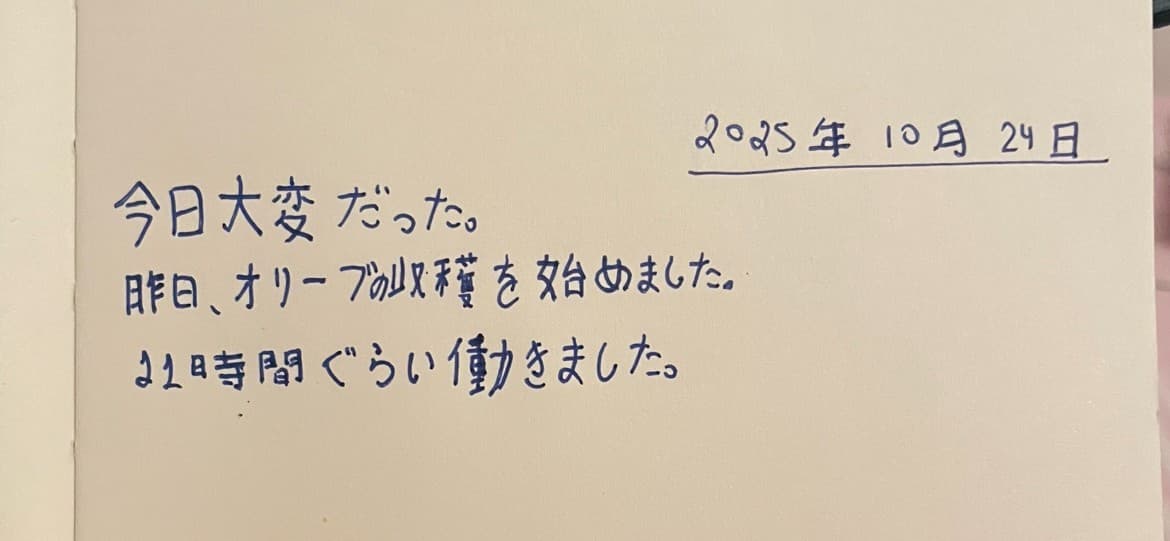 2025年 10月 24日
今日大変だった。
昨日、オリーブの収穫を始めました。
11時間ぐらい働きました。